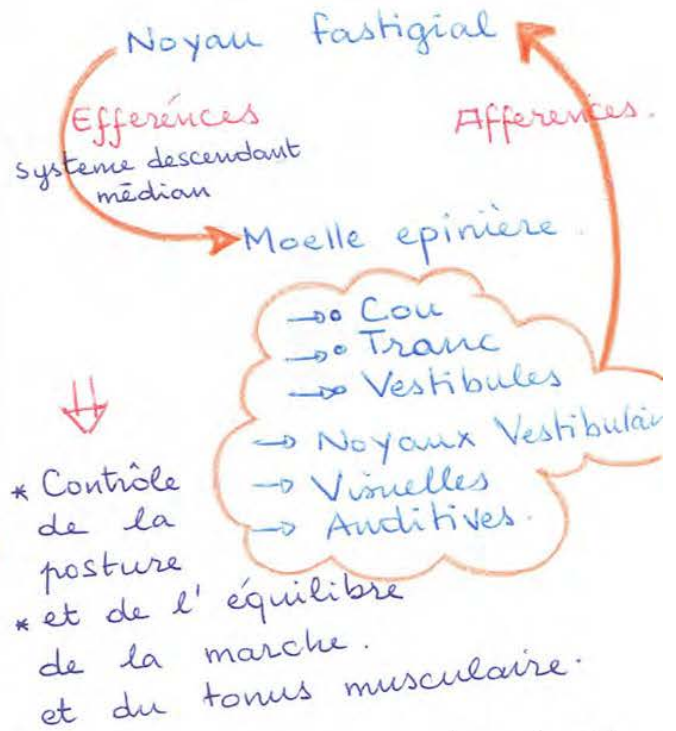 Noyau fastigial
Efferénces
Afferences.
système descendant
médian
Moelle epinière.
→ Cou
→ Tranc
→ Vestibules
→ Noyaux Vestibulair
→ Visuelles
→ Auditives.
* Contrôle
de la
posture
* et de l'équilibre
de la marche.
et du tonus musculaire.